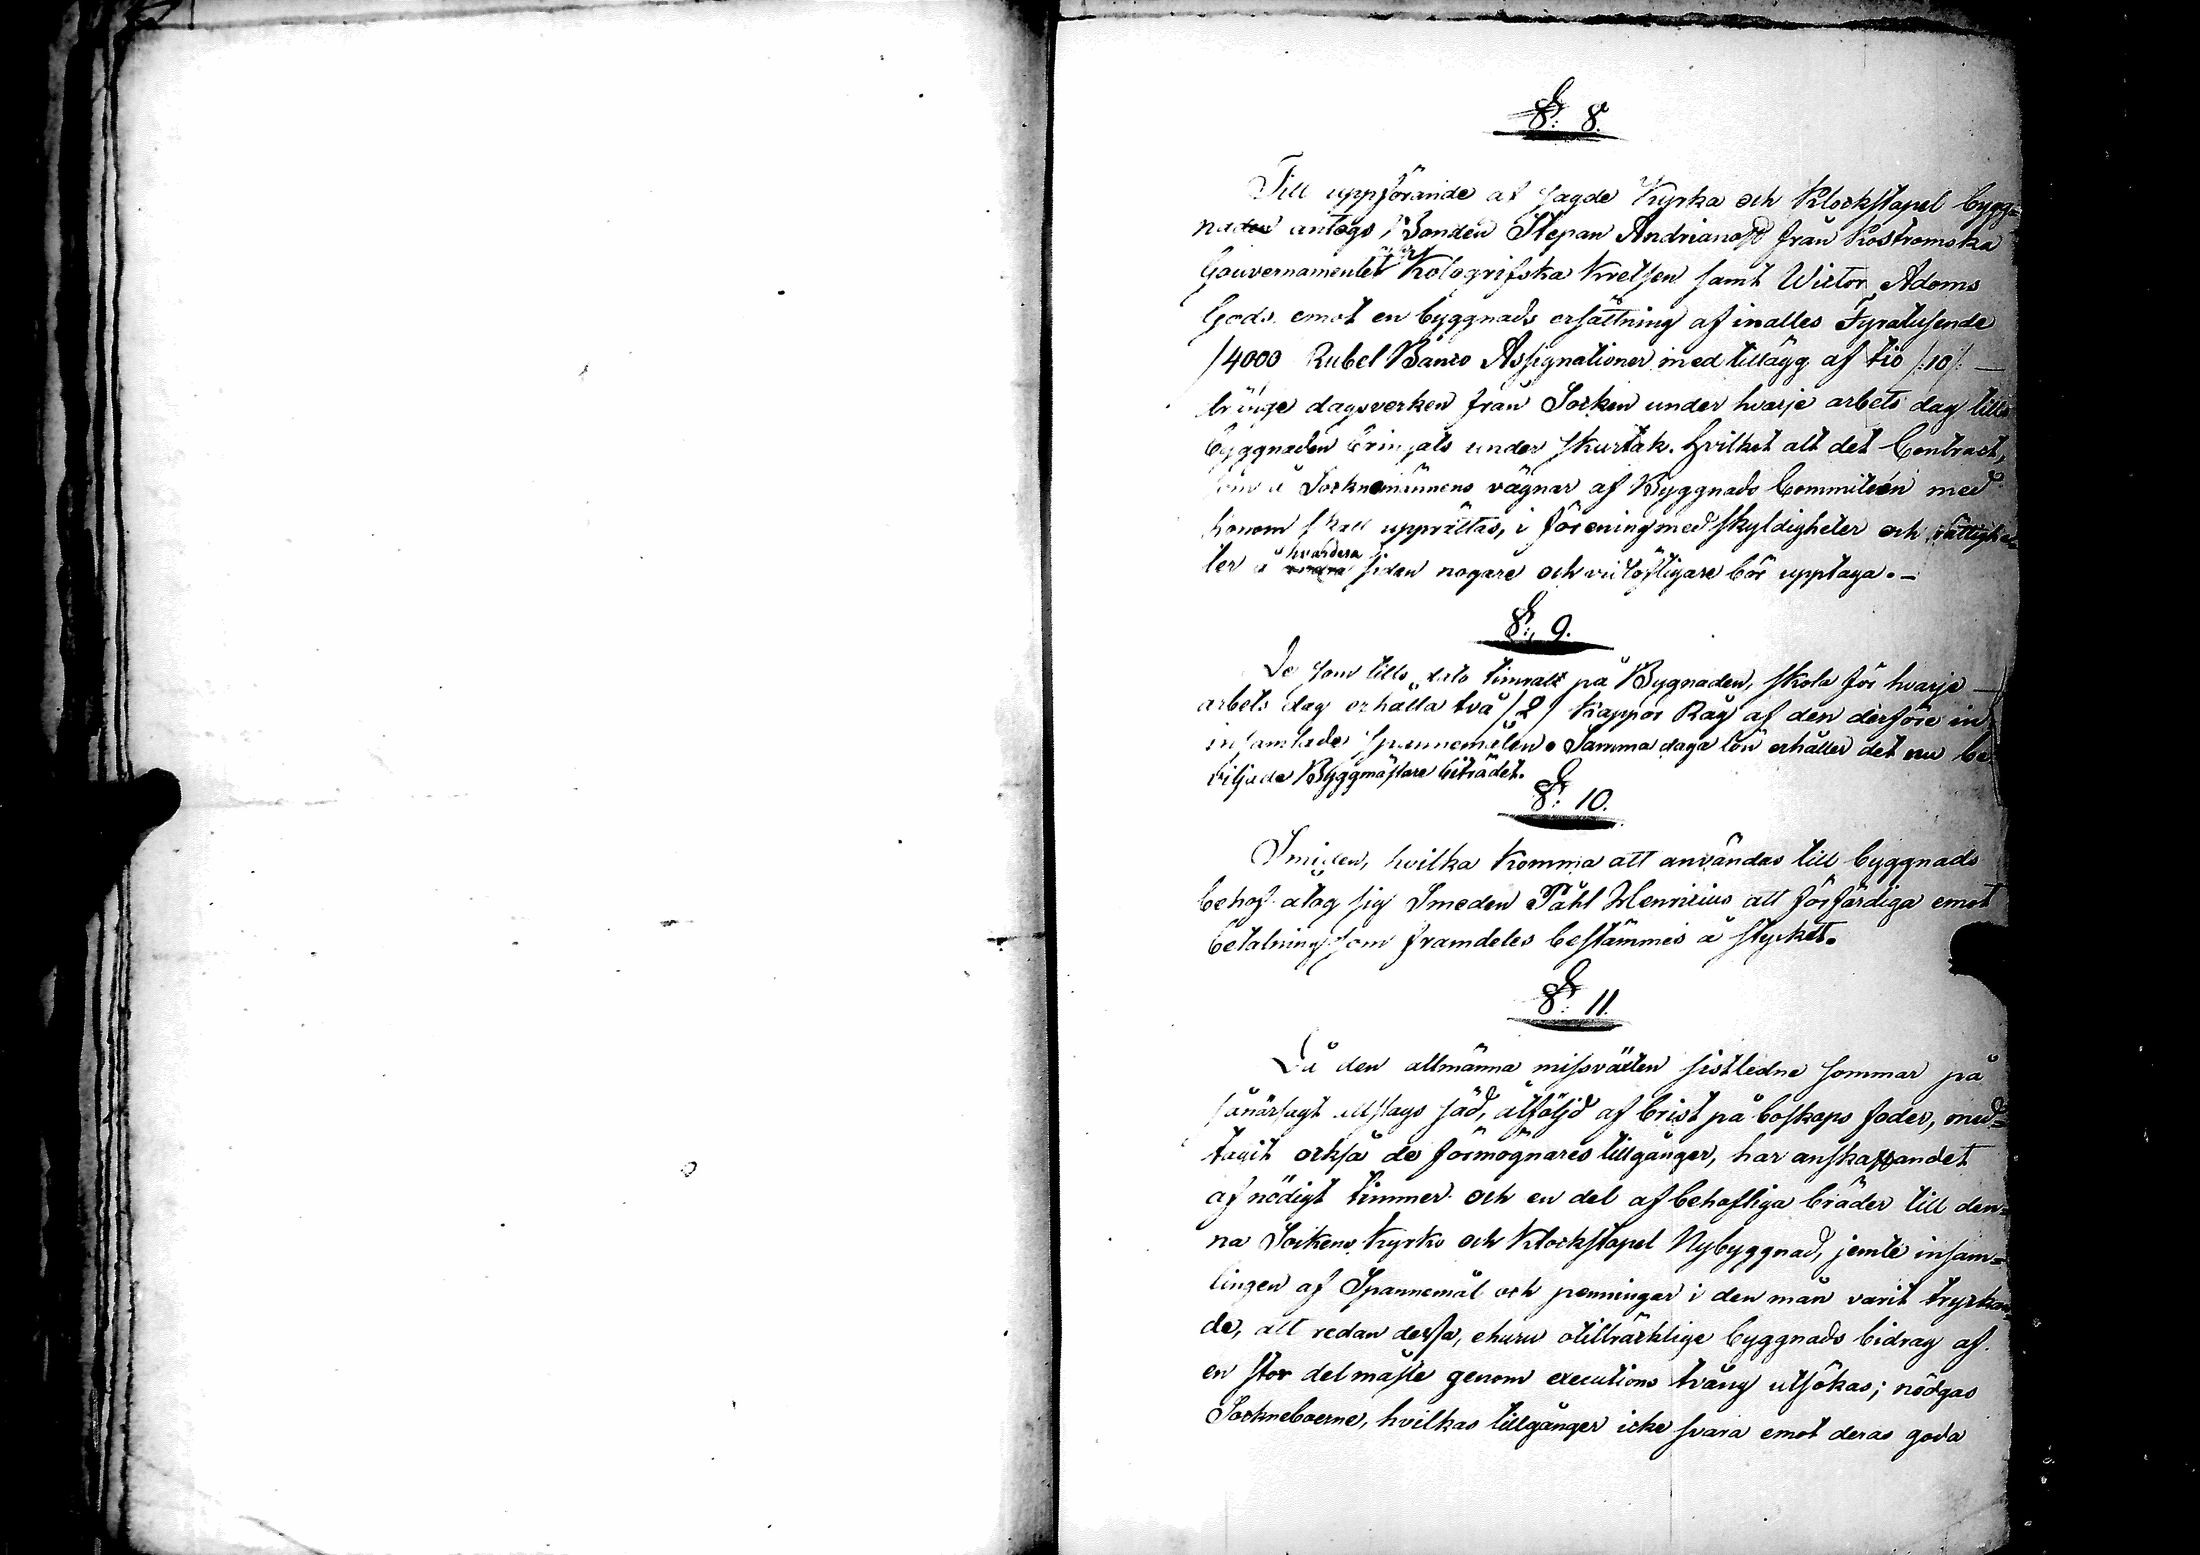 §: 8.
Till uppförande af sagde Kyrka och Klockstapel bygg=
naden antogs Bonden Stepan Andrianoff från Kostromska
Gouvernamentet Kologrifska Kretsen samt Wictor Adoms
Gods emot en byggnads ersättning af inalles Fyratusende
/4000 Rubel Banco Assignationer med tillägg af tio /:10/: —
dagsverken från Socken under hvarje arbets dag tills
byggnaden bringats under skurtak. Hvilket alt det Contract,
som å Socknemännens vägnar af Byggnads Committén med
honom skall upprättas, i förening med skyldigheter och rättighe=
ter å hvardera sidan nogare och vidlöftigare bör upptaga. —
§:, 9.
De som tills dato timrat på Bygnaden, skola för hvarje —
arbets dag erhålla två /2/ Kappor Råg af den derföre in
insamlade spannemålen. Samma daga lön erhåller det nu be
viljade Byggmästare biträdet.
§: 10.
Smiden, hvilka Komma att användas till byggnads
behof åtog sig Smeden Påhl Henricius att förfärdiga emot
betalning som framdeles bestämmes å stycket.
§: 11.
Då den allmänna missväxten sistledne sommar på
sånärsagt allslags säd, åtföljd af brist på boskaps foder, med=
tagit också de förmögnares tillgånger, har anskaffandet
af nödigt timmer och en del af behofliga bräder till den=
na Sockens Kyrko och Klockstapel Nybyggnad, jemte insam=
lingen af Spannemål och penningar i den mån varit tryckan=
de, att redan dessa, ehuru otillräcklige byggnads bidrag af
en stor del måste genom executions tvång utsökas; nödgas
Sockneboerne, hvilkas tillgånger icke svara emot deras goda